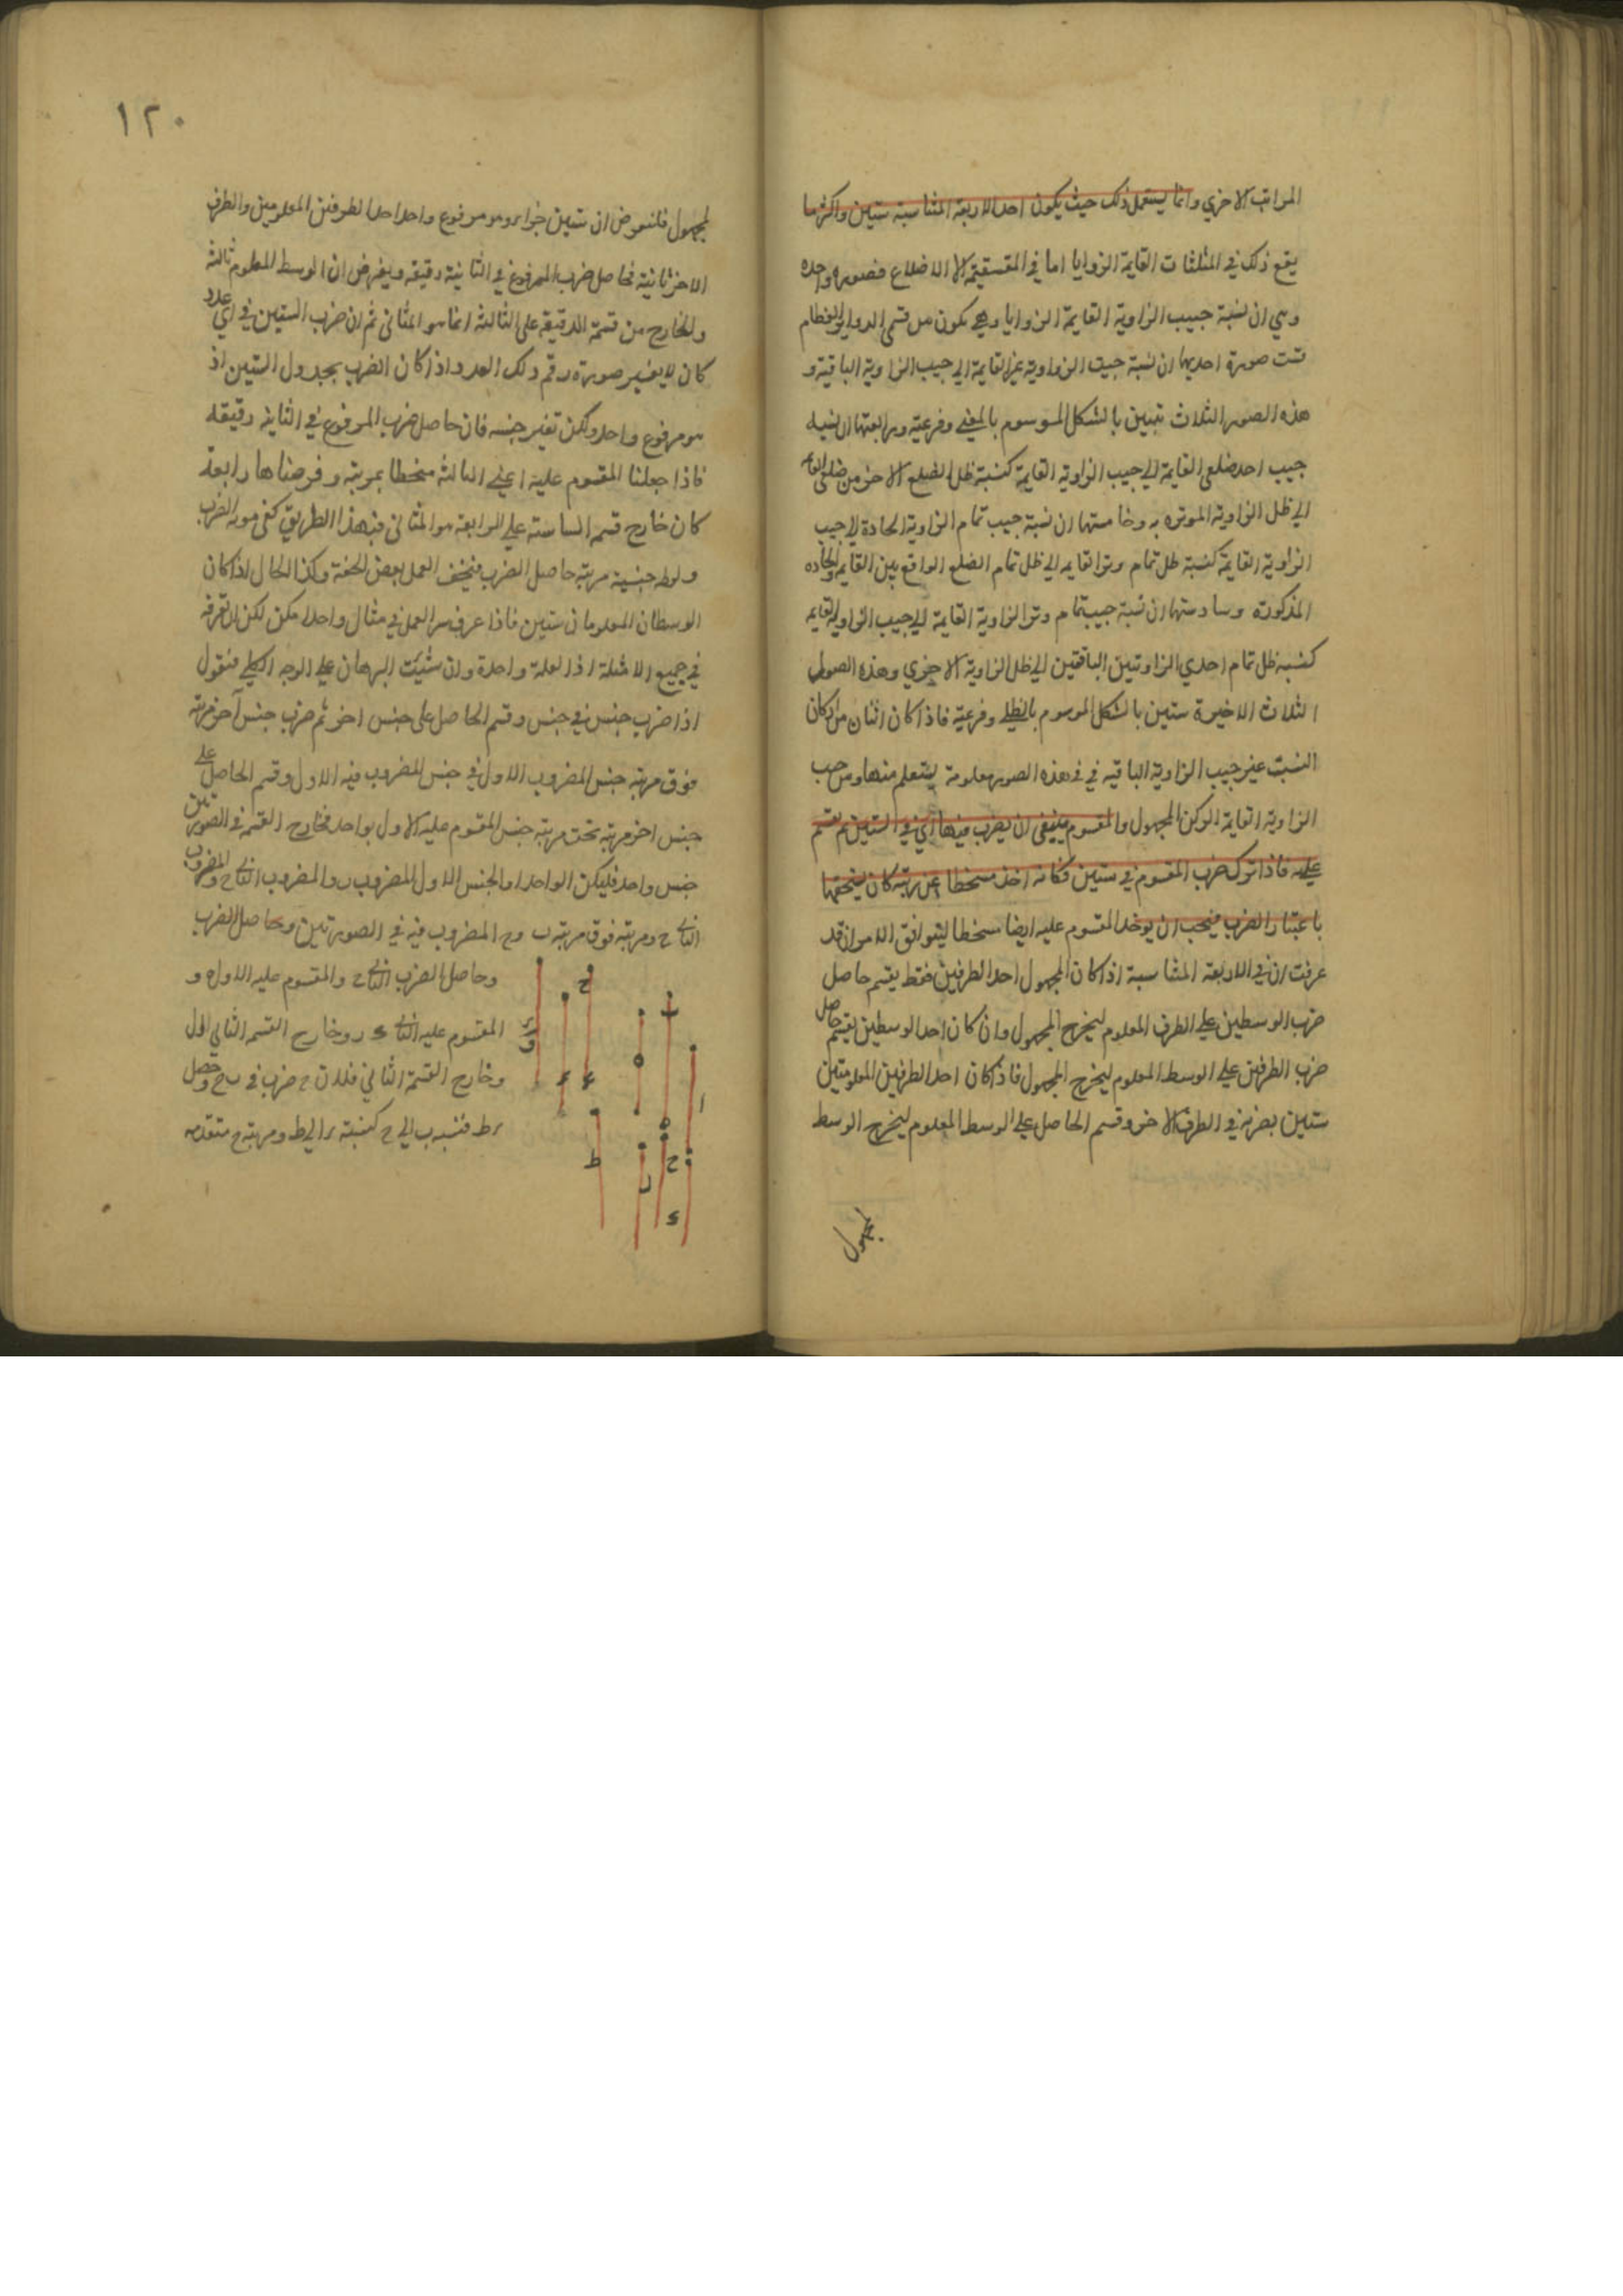 المراتب الاخري وانما يستعمل ذلك حيث يكون احد الاربعة المتناسبة ستين واكثر ما
يقع ذلك في المثلثات القايمة الزوايا اما في المستقيمة الاضلاع فصوره واحده
وهي ان نسبة جيب الزاوية القايمة الزوايا وهي تكون من قسي الدواير العظام
ست صورة احديها ان نسبة جيب الزاوية غير القايمة الي جيب الزاوية الباقية و
هذه الصور الثلاث تبين بالشكل الموسوم بالمغني وفرعيته ورابعتها ان نسبة
جيب احد ضلعي القايمة الي جيب الزاوية القايمة كنسبة ظل الضلع الاخر من ضلعي القايمة
الي ظل الزاوية الموتره به وخامستها ان نسبة جيب تمام الزاوية الحادة الي جيب
الزاوية القايمة كنسبة ظل تمام وتر القايمه الي ظل تمام الضلع الواقع بين القايمه والحاده
المذكورة وسادستها ان نسبة جيب تمام وتر الزاوية القايمة الي جيب الزاوية القايمه
كنسبة ظل تمام احدي الزاوتين الباقتين الي ظل الزاوية الاخري وهذه الصور
الثلاث الاخيرة ستين بالشكل الموسوم بالظلي وفرعيته فاذا كان اثنان من اركان
النسبة غير جيب الزاوية الباقيه في هذه الصور معلومة يستعلم منها ومن جيب
الزاوية القايمة الركن المجهول والمقسوم ينبغي ان يضرب فيها اي في الستين ثم يقسم
عليه فاذا ترك ضرب المقسوم في ستين فكانه اخذ منحطا عن مرتبة كان يستحقها
باعتبار الضرب فيجب ان يوخذ المقسوم عليه ايضا منحطا ليتوافق الامران قد
عرفت ان في الاربعة المتناسبة اذا كان المجهول احد الطرفين فقط يقسم حاصل
ضرب الوسطين علي الطرف المعلوم ليخرج المجهول وان كان احد الوسطين يقسم حاصل
ضرب الطرفين علي الوسط المعلوم ليخرج المجهول فاذا كان احد الطرفين المعلومتين
ستين يضربه في الطرف الاخر وقسم الحاصل علي الوسط المعلوم ليخرج الوسط
لمجهول
١٢٠
لمجهول فلنفرض ان ستين جزا وهو مرفوع واحد احد الطرفين المعلومين والطرف
الاخر ثانية فحاصل ضرب المرفوع في الثانية دقيقه ويفرض ان الوسط المعلوم ثالثة
والخارج من قسمة الدقيقه علي الثالثة انما هو المثاني ثم ان ضرب الستين في اي عدد
كان لا يغير صورة رقم ذلك العدد اذا كان الضرب بجدول الستين اذ
هو مرفوع واحد ولكن تغير جنسه فان حاصل ضرب المرفوع في الثانيه دقيقه
فاذا جعلنا المقسوم عليه اعني الثالثة منحطا بمرتبة وفرضناها رابعة
كان خارج قسمه السادسة علي الرابعة هو المثاني فبهذا الطريق كفي مونه الضرب
حاصل الضرب فيخف العمل بعض الخفة وكذا الحال اذا كان
الوسطان المعلومان ستين فاذا عرف سر العمل في مثال واحد امكن لكن ان تعرفه
في جميع الامثلة اذ العلة واحدة وان شئت البرهان علي الوجه الكلي فنقول
اذا ضرب جنس في جنس وقسم الحاصل علي جنس اخر ثم ضرب جنس آخر مرتبه
فوق مرتبه جنس المضروب الاول في جنس المضروب فيه الاول وقسم الحاصل علي
جنس اخر مرتبه تحت مرتبه جنس المقسوم عليه الاول بواحد فخارج القسمه في الصورتين
جنس واحد فليكن الواحد ا والجنس الاول المضروب ب والمضروب الثاني ح والمضروب
الثاني ح ومرتبه فوق مرتبه ب وح المضروب فيه في الصورتين وحاصل الضرب
وحاصل الضرب الثاني ح والمقسوم عليه الاول ه و
المقسوم عليه الثاني ء ر وخارج القسم الثاني الاول
وخارج القسمة الثاني فلان ح ضرب في ب ح وحصل
ر ط فنسبه ب الي ح كنسبة ر الي ط ومرتبه ح متقدمه